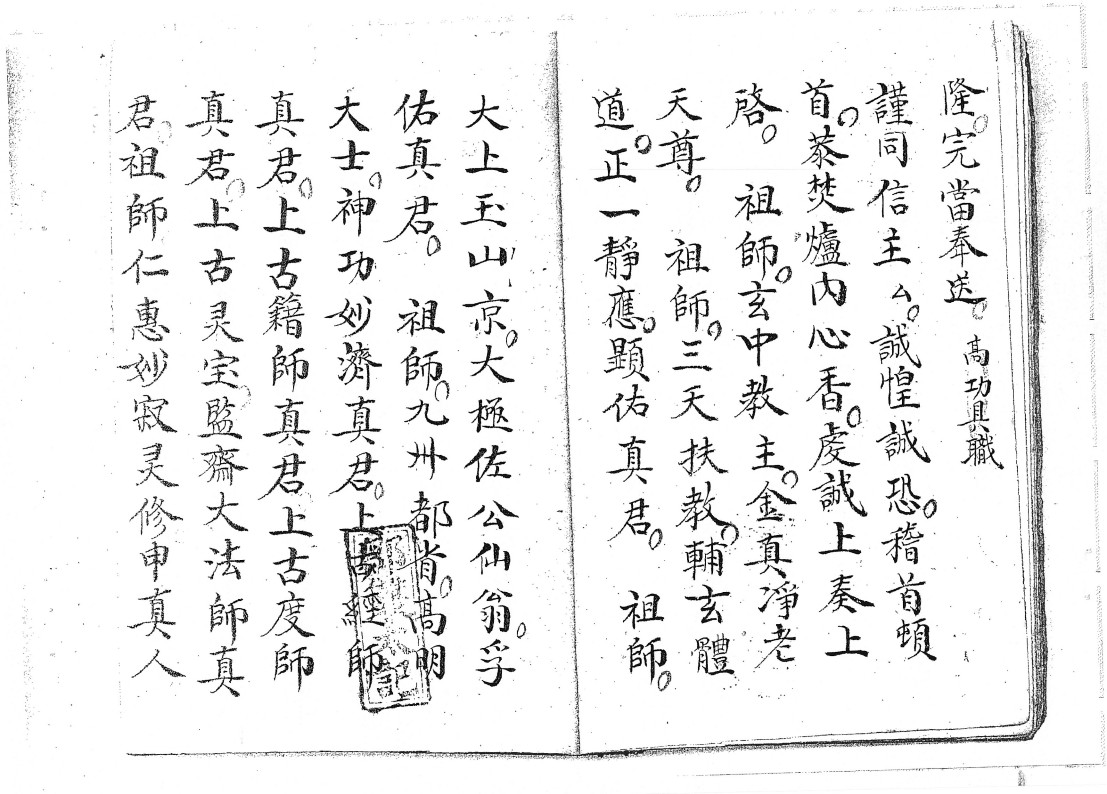 隆。完當奉送。高功具職
謹同信主厶。誠惶誠恐。稽首頓
首。恭焚爐內心香。虔誠上奏上
啓。祖師。玄中教主。金真淨老
天尊。祖師。三天扶教。輔玄體
道。正一靜應。顯佑真君。祖師。
大上玉山京。大極佐公仙翁。孚
佑真君。祖師。九州都省。高明
大士。神功妙濟真君。上古經師
真君。上古籍師真君上古度師
真君。上古灵宝監齋大法師真
君。祖師仁惠妙寂灵修申真人